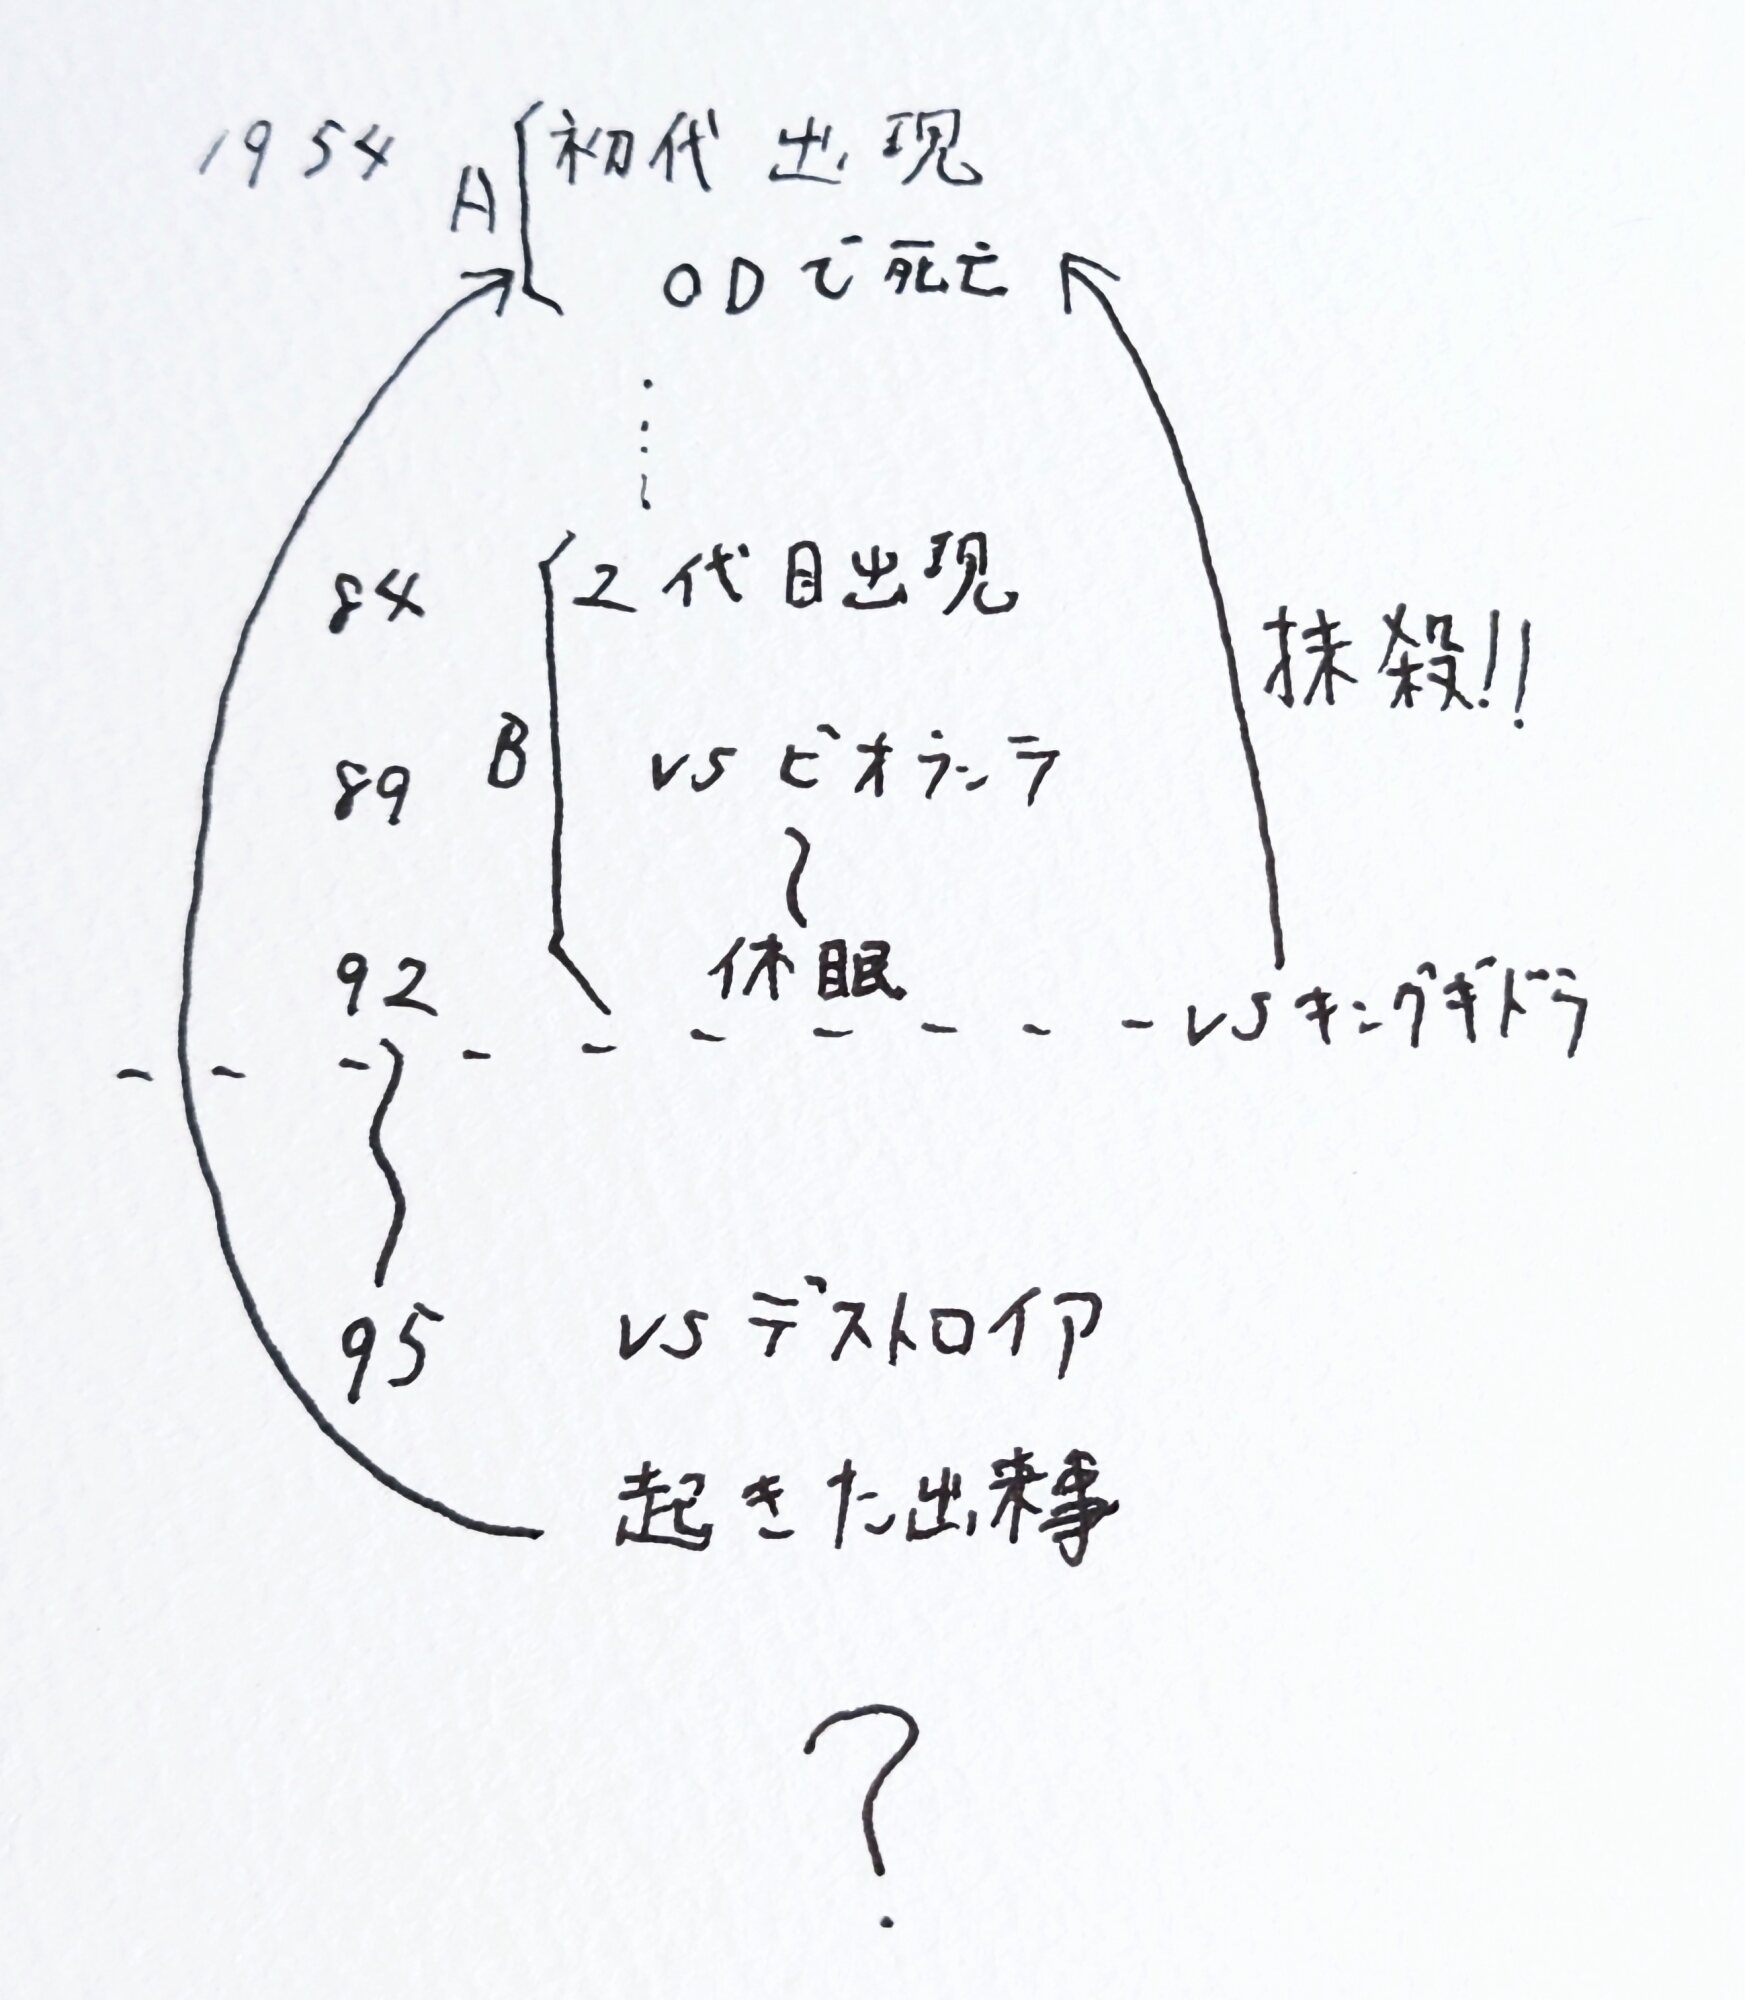 1954 A 初代出現
ODで死亡
84 2代目出現
抹殺!!
89 B vsビオランテ
92 休眠
vsキングギドラ
95 vsデストロイア
起きた出来事
?